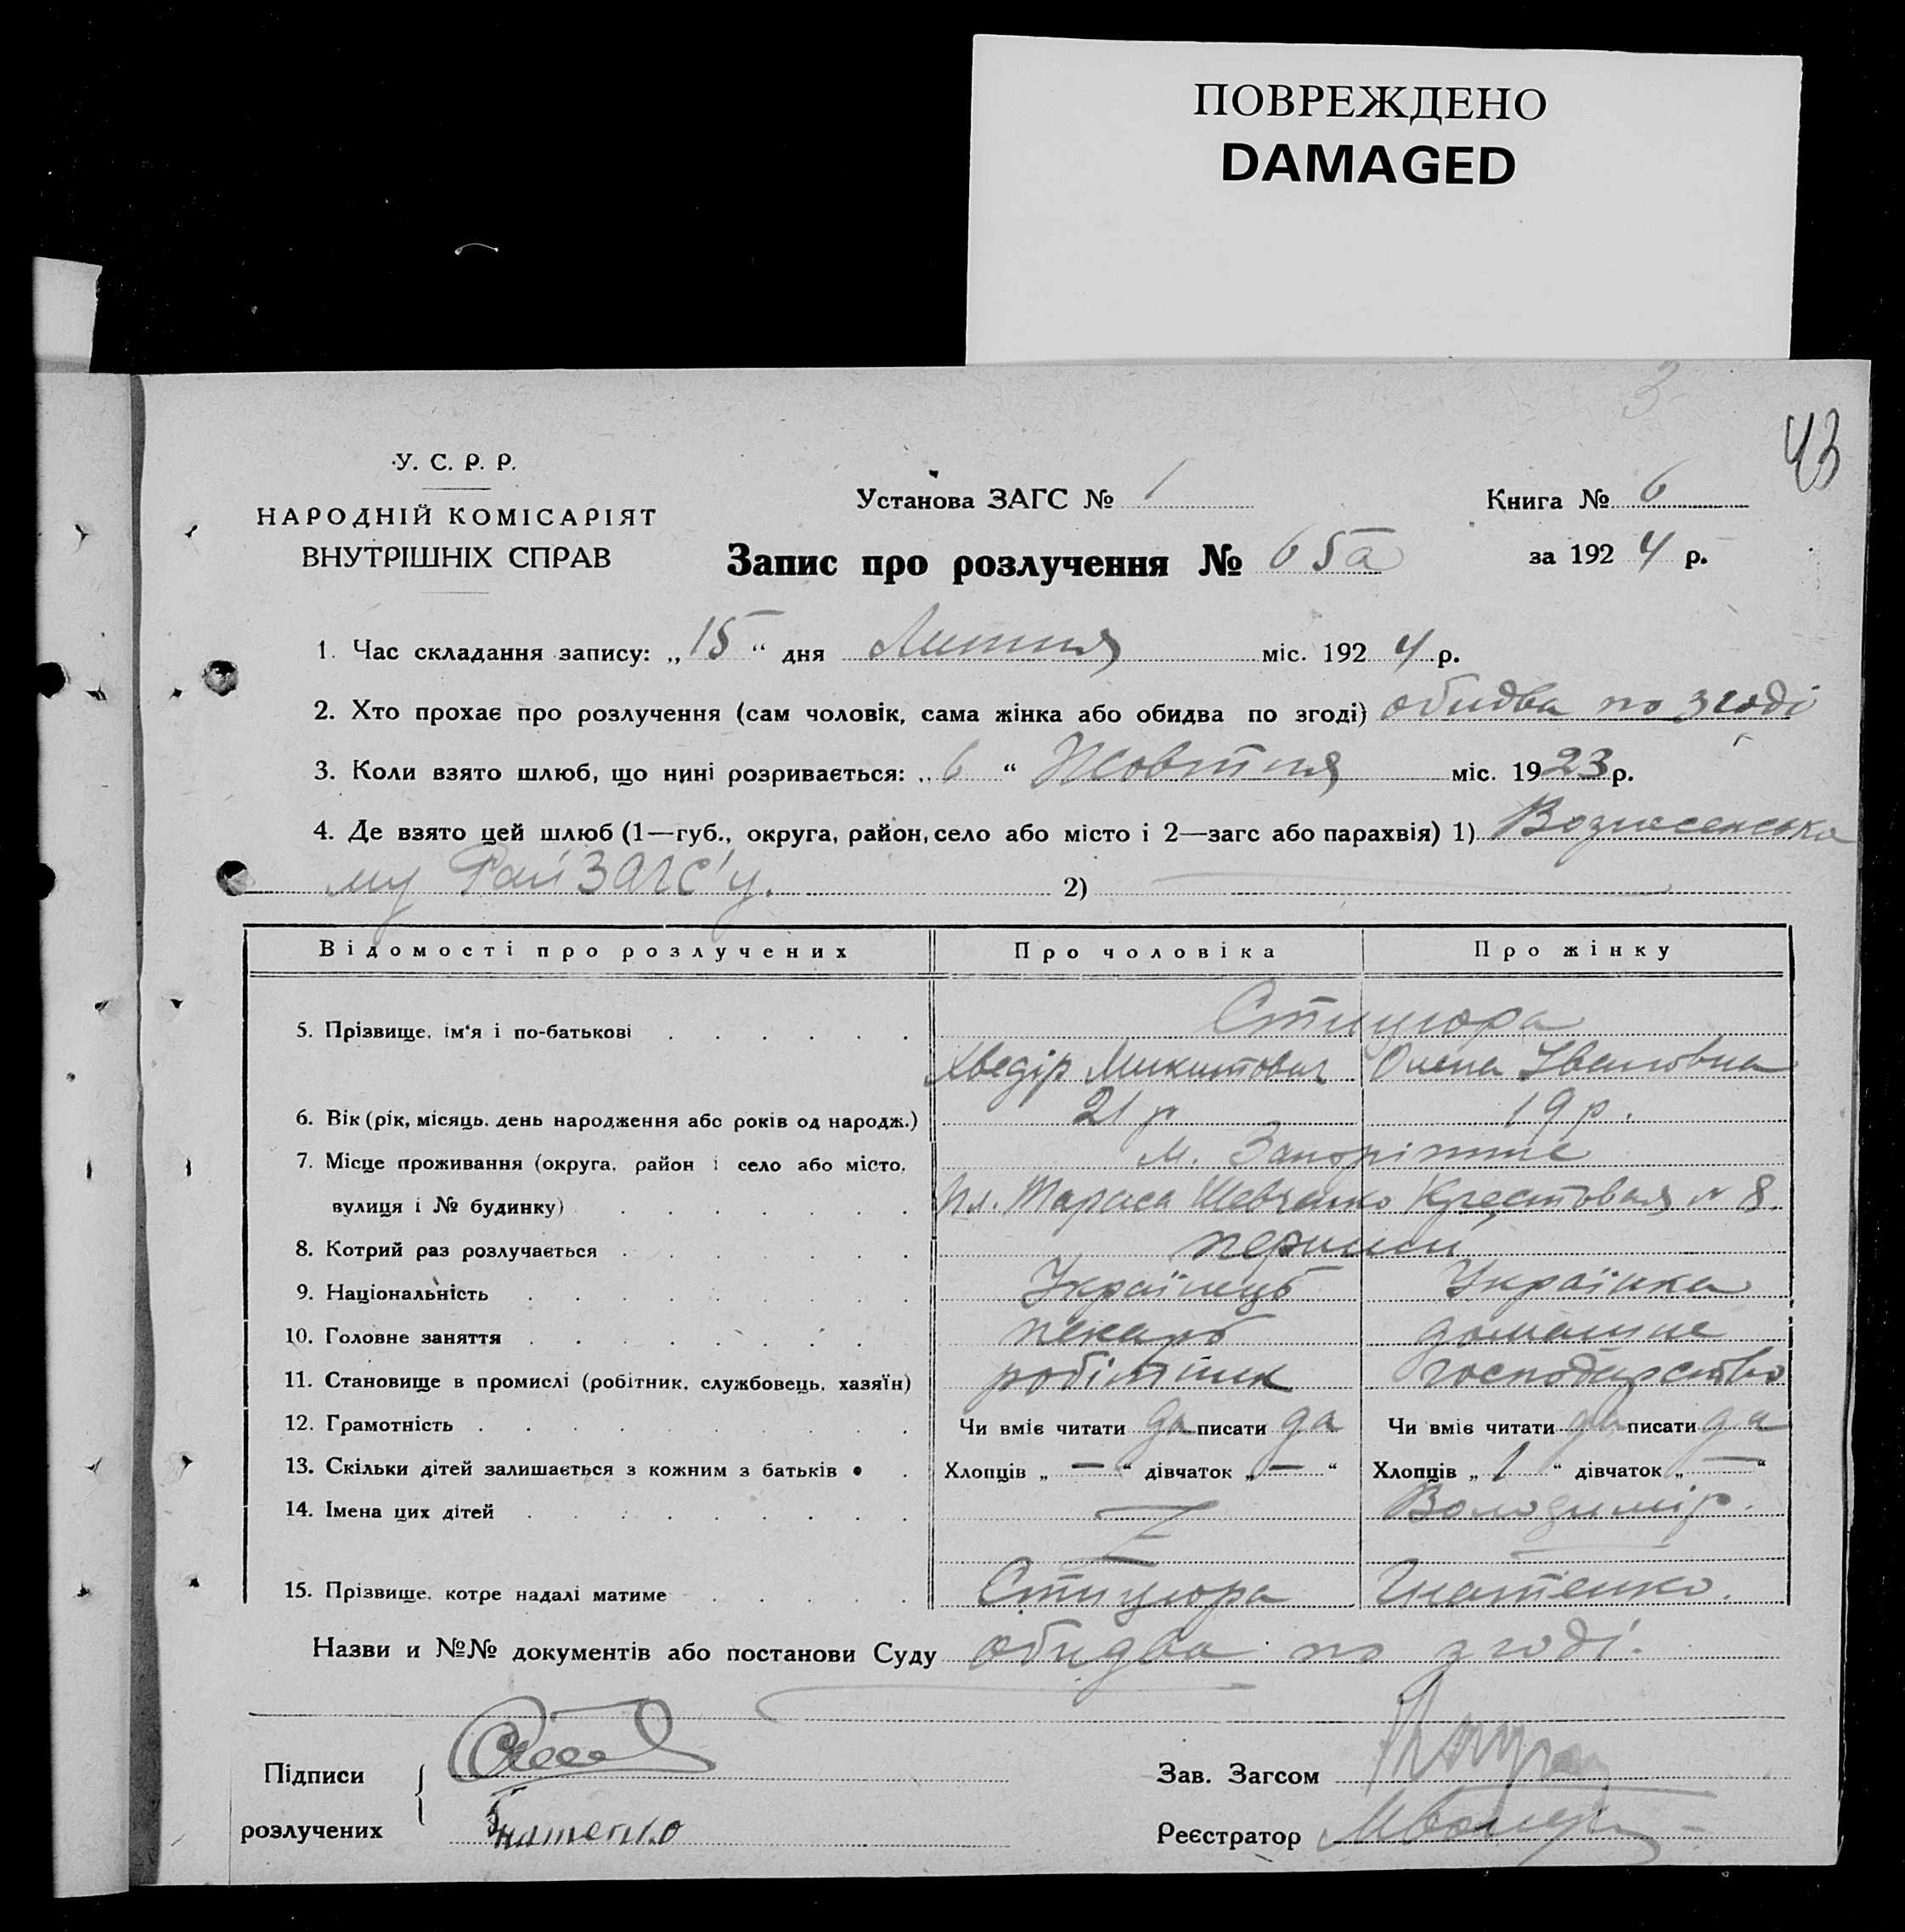 ПОВРЕЖДЕНО
DAMAGED
3
43
У. С. Р. Р.
НАРОДНІЙ КОМІСАРІЯТ
ВНУТРІШНІХ СПРАВ
Установа ЗАГС № 1
Книга № 6
Запис про розлучення № 65а
за 1924 р.
1. Час складання запису: „15“ дня Липня міс. 1924 р.
2. Хто прохає про розлучення (сам чоловік, сама жінка або обидва по згоді) обидва по згоді
3. Коли взято шлюб, що нині розривається: „6“ Жовтня міс. 1923 р.
4. Де взято цей шлюб (1—губ., округа, район, село або місто і 2—загс або парахвія) 1) Вознесенська
му РайЗАГС'у. 2)
Відомості про розлучених Про чоловіка Про жінку
5. Прізвище, ім'я і по-батькові Стицюра
Хведір Микитович Олена Івановна
6. Вік (рік, місяць, день народження або років од народж.) 21 р 19 р.
7. Місце проживання (округа, район і село або місто, м. Запоріжжє
вулиця і № будинку) Пл. Тараса Шевченко Крестовая № 8.
8. Котрий раз розлучається перший
9. Національність Українець Українка
10. Головне заняття пекарь домашне
11. Становище в промислі (робітник, службовець, хазяїн) робітник господарство
12. Грамотність Чи вміє читати да писати да Чи вміє читати да писати да
13. Скільки дітей залишається з кожним з батьків Хлопців „—“ дівчаток „—“ Хлопців „1“ дівчаток „—“
14. Імена цих дітей Володимір.
15. Прізвище, котре надалі матиме Стицюра Гнатенко.
Назви и №№ документів або постанови Суду обидва по згоді.
Підписи
розлучених
Гнатенко
Зав. Загсом
Реєстратор